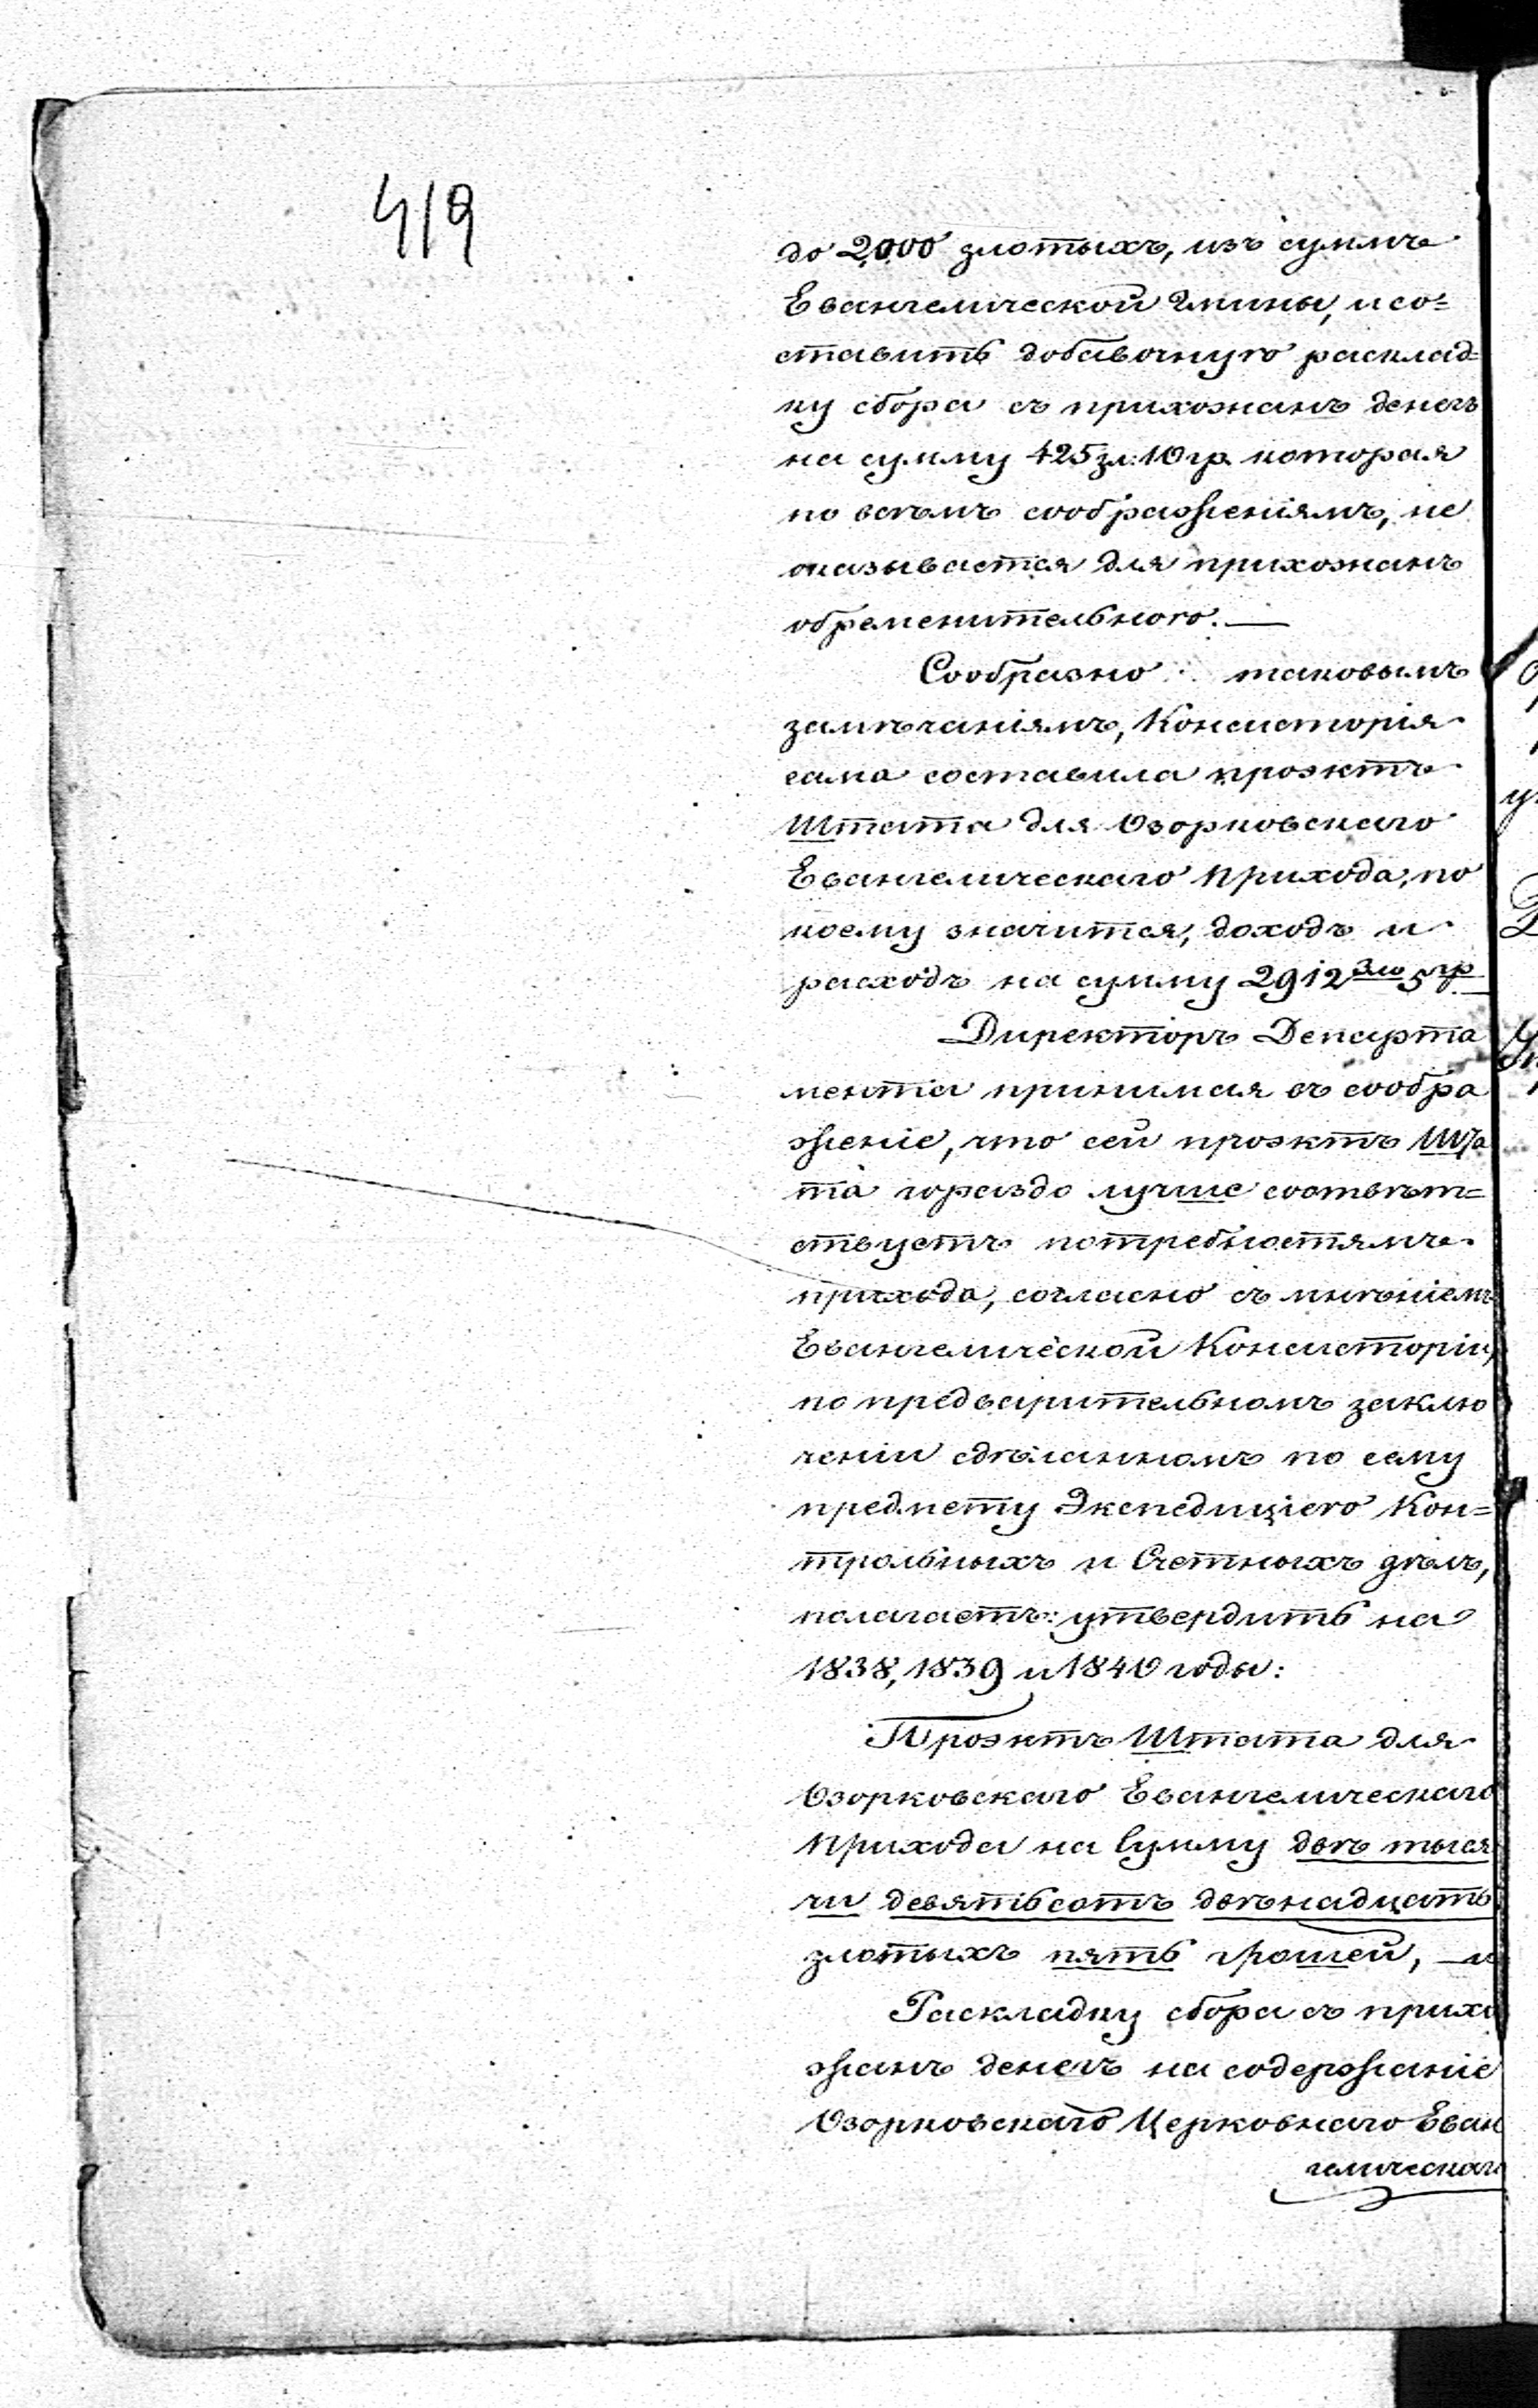 419
до 2000 злотыхъ, изъ суммъ
Евангелической Гмины, и со=
ставить добавочную расклад=
ку сбора съ прихожанъ денегъ
на сумму 425 зл: 10 гр. которая
по всѣмъ соображеніямъ, не
оказывается для прихожанъ
обременительною. —
Сообразно таковымъ
замѣчаніямъ, Консисторія
сама составила проэктъ
Штата для Озорковскаго
Евангелическаго прихода, по
коему значится, доходъ и
расходъ на сумму 2912 зло 5 гр
Директоръ Департа
мента принимая въ сообра
женіе, что сей проэктъ Шта
та гораздо лучше соотвѣт=
ствуетъ потребностямъ
прихода, согласно съ мнѣніемъ
Евангелической Консисторіи,
по предварительномъ заклю
ченіи сдѣланномъ по сему
предмету Экспедиціею Кон=
трольныхъ и Счетныхъ дѣлъ,
полагаетъ: утвердить на
1838, 1839 и 1840 годы:
Проэктъ Штата для
Озорковскаго Евангелическаго
прихода на Сумму двѣ тыся
чи девятьсотъ двѣнадцать
злотыхъ пять грошей, — и
Раскладку сбора съ прихо
жанъ денегъ на содержаніе
Озорковскаго Церковнаго Еван
гелическаго